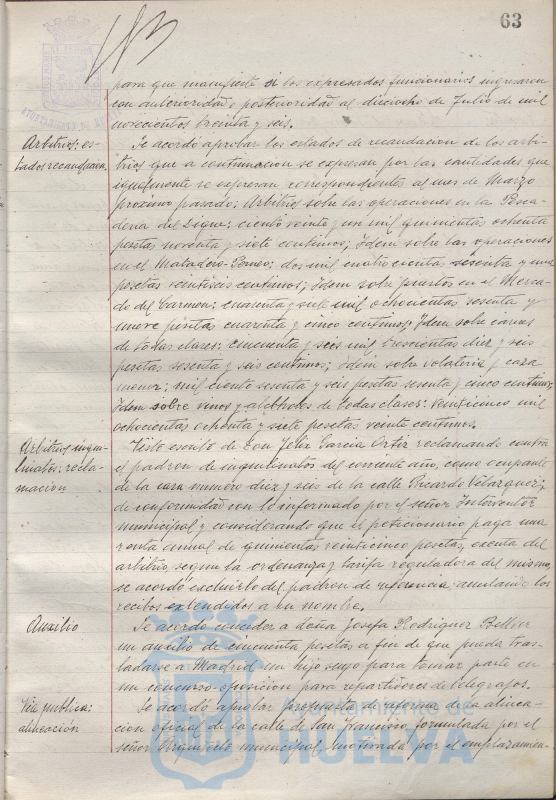 63
para que manifieste si los expresados funcionarios ingresaron
con anterioridad o posterioridad al dieciocho de Julio de mil
novecientos treinta y seis.
Arbitrios; es-
tados recaudación.
Se acordó aprobar los estados de recaudación de los arbi-
trios que a continuación se expresan por las cantidades que
igualmente se expresan correspondientes al mes de Marzo
próximo pasado: Arbitrios sobre las operaciones en la Pesca-
dería del Dique: ciento veinte y un mil quinientas ochenta
pesetas noventa y siete centimos; Idem sobre las operaciones
en el Matadero-Romeo: dos mil cuatrocientas sesenta y una
pesetas veintiseis centimos; Idem sobre puestos en el Merca-
do del Carmen: cuarenta y siete mil ochocientas sesenta y
nueve pesetas cuarenta y cinco centimos; Idem sobre carnes
de todas clases: cincuenta y seis mil trescientas diez y seis
pesetas sesenta y seis centimos; Idem sobre volateria y caza
menor: mil ciento sesenta y seis pesetas sesenta y cinco centimos;
Idem sobre vinos y alcoholes de todas clases: veinticinco mil
ochocientas ochenta y siete pesetas veinte centimos.
Arbitrios inqui-
linatos: recla-
mación
Visto escrito de Don Felix Garcia Ortiz reclamando contra
el padron de inquilinatos del corriente año, como ocupante
de la casa numero diez y seis de la calle Ricardo Velazquez;
de conformidad con lo informado por el señor Interventor
municipal y considerando que el peticionario paga una
renta anual de quinientas veinticinco pesetas, exenta del
arbitrio, segun la ordenanza y tarifa reguladora del mismo,
se acordó excluirlo del padron de referencia anulando los
recibos extendidos a su nombre.
Auxilio
Se acordó conceder a doña Josefa Rodriguez Bellier
un auxilio de cincuenta pesetas a fin de que pueda tras-
ladarse a Madrid un hijo suyo para tomar parte en
un concurso-oposicion para repartidores de telegrafos.
Via publica:
alineación
Se acordó aprobar propuesta de reforma de la alinea-
ción oficial de la calle de San Francisco, formulada por el
señor Arquitecto municipal, motivada por el emplazamien-
HUELVA